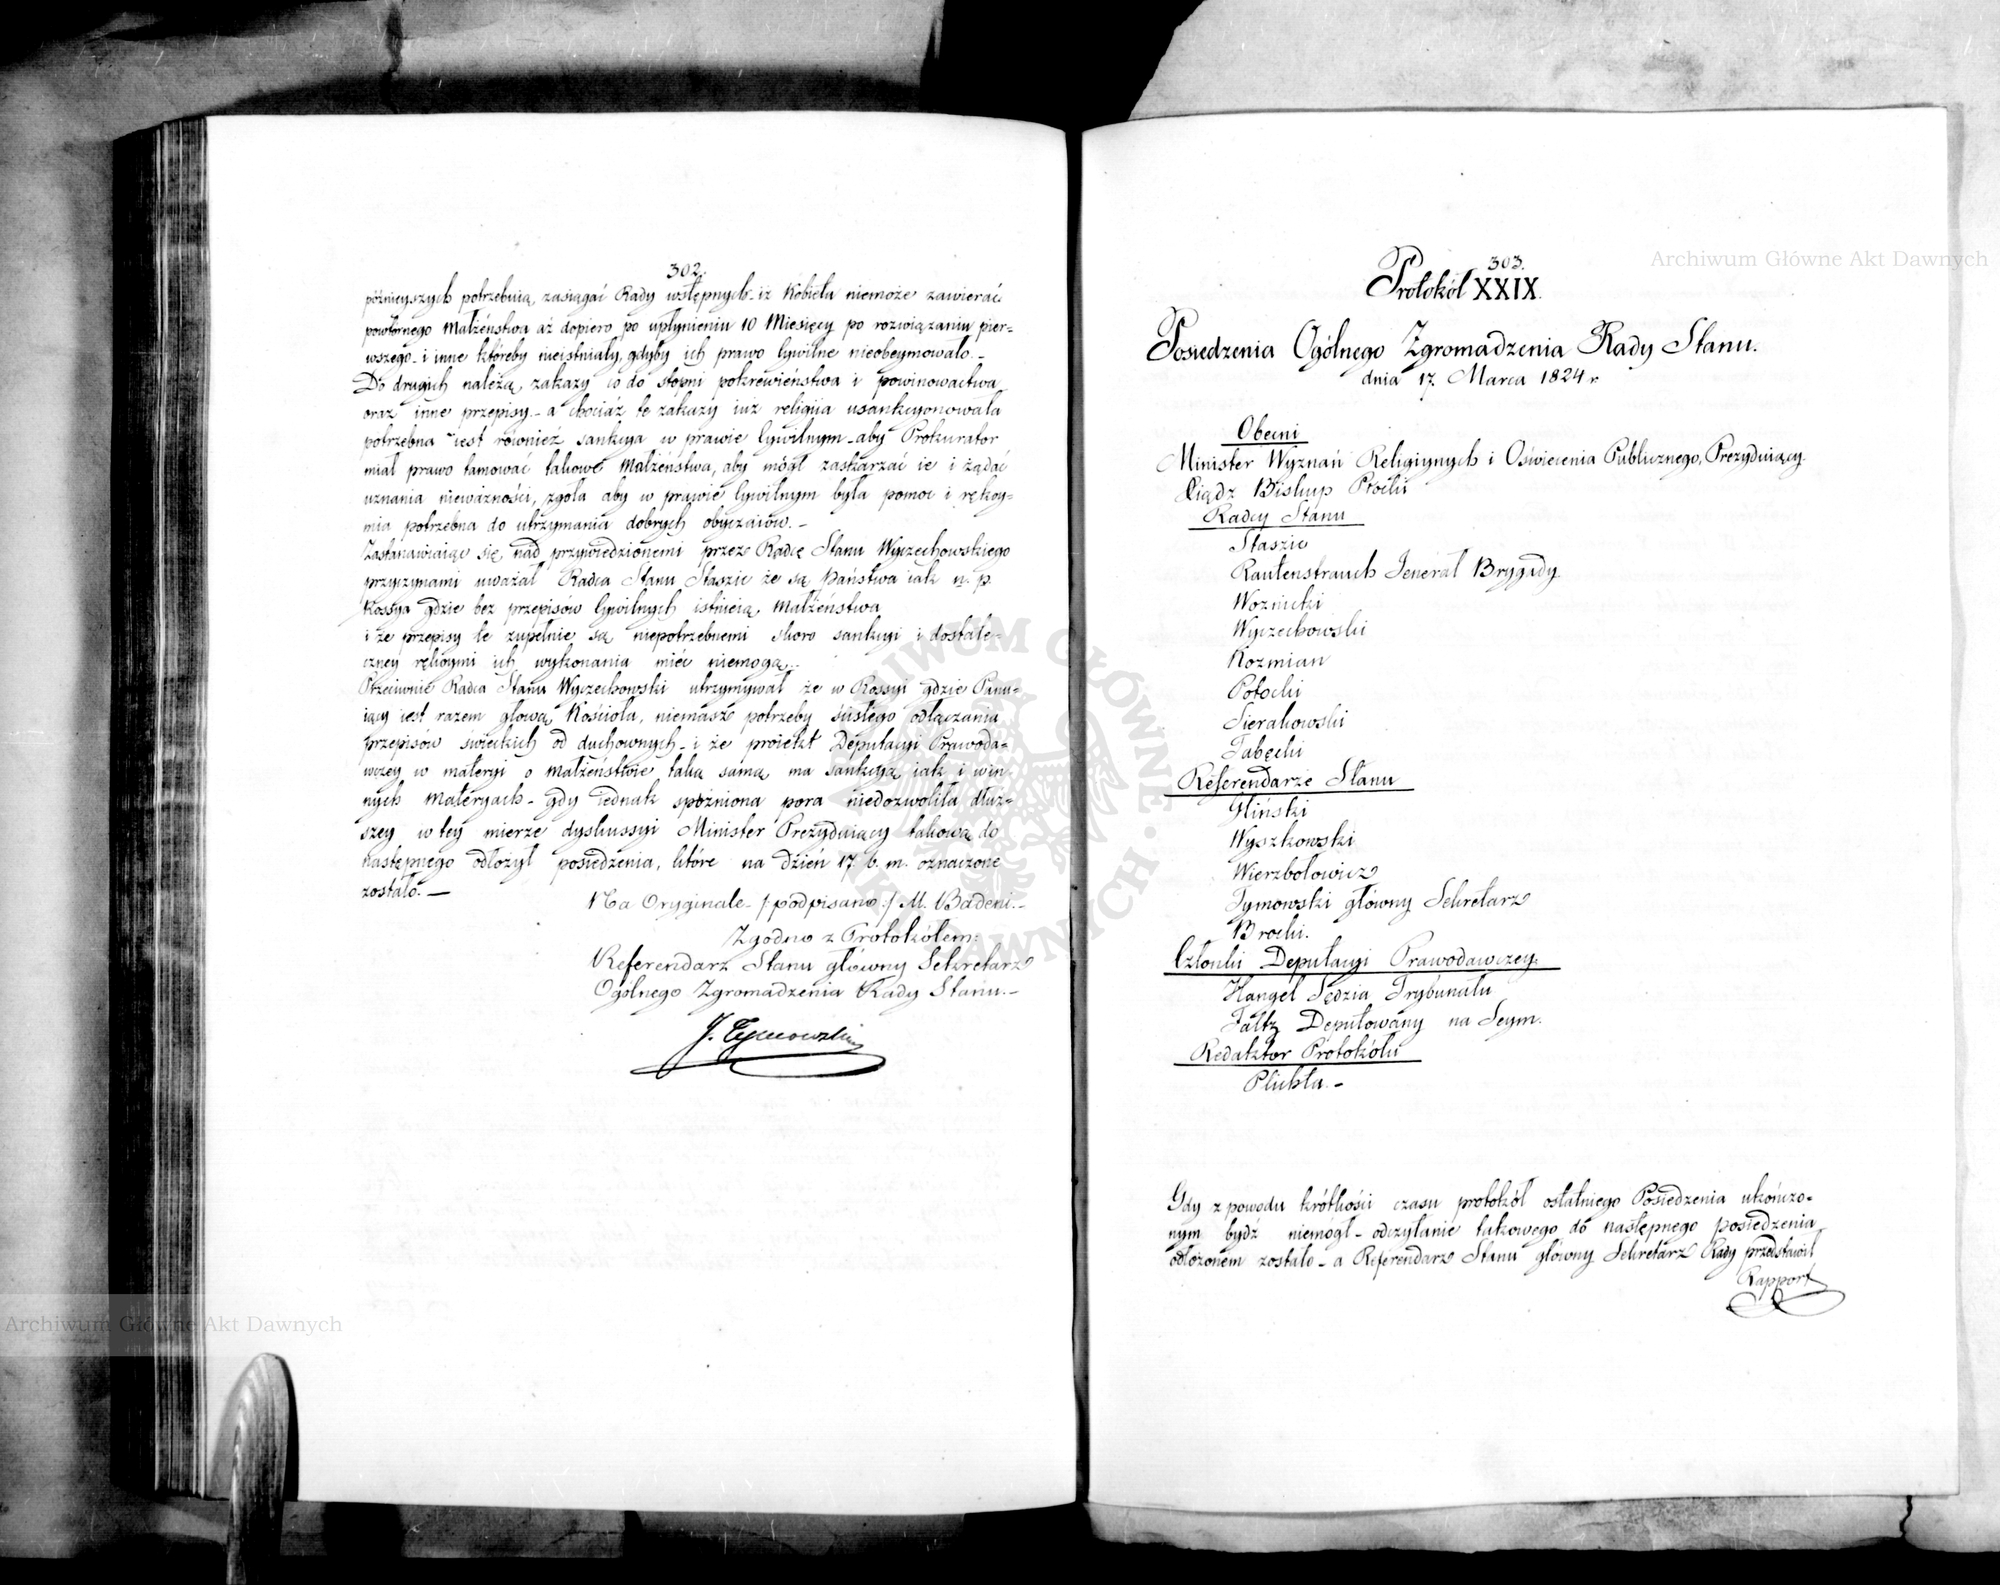 302.
późnieyszych potrzebuią, zasiągać Rady wstępnych - iż Kobieta niemoże zawierać
powtórnego Małżeństwa aż dopiero po upłynieniu 10 Miesięcy po rozwiązaniu pier=
wszego - i inne któreby nieistniały, gdyby ich prawo Cywilne nieobeymowało. -
Do drugich należą, zakazy co do stopni pokrewieństwa i powinowactwa
oraz inne przepisy - a chociaż te zakazy iuż religiia usankcyonowała
potrzebna iest również sankcya w prawie Cywilnym - aby Prokurator
miał prawo tamować takowe Małżeństwa, aby mógł zaskarżać ie i żądać
uznania nieważności, zgoła aby w prawie Cywilnym była pomoc i rękoy=
mia potrzebna do utrzymania dobrych obyczaiów. -
Zastanawiaiąc się nad przywiedzionemi przez Radcę Stanu Wyczechowskiego
przyczynami uważał Radca Stanu Staszic że są Państwa iak n. p.
Rossya gdzie bez przepisów Cywilnych istnieią Małżeństwa
i że przepisy te zupełnie są niepotrzebnemi skoro sankcyi i dostate=
czney rękoymi ich wykonania mieć niemogą. -
Przeciwnie Radca Stanu Wyczechowski utrzymywał że w Rossyi gdzie Panu=
iący iest razem głową Kościoła, niemasz potrzeby ścisłego odłączania
przepisów świeckich od duchownych - i że proiekt Deputacyi Prawoda=
wczey w materyi o Małżeństwie taką samą ma sankcyą iak i w in
nych Materyach - gdy iednak spóźniona pora niedozwoliła dłuż=
szey w tey mierze dyskussyi Minister Prezyduiący takową do
następnego odłożył posiedzenia, które na dzień 17. b. m. oznaczone
zostało. -
Na Oryginale - /podpisano:/ M. Badeni. -
Zgodno z Protokółem:
Referendarz Stanu główny Sekretarz
Ogólnego Zgromadzenia Rady Stanu. -
J. Tymowski
303.
Protokół XXIX.
Posiedzenia Ogólnego Zgromadzenia Rady Stanu.
dnia 17. Marca 1824 r
Obecni
Minister Wyznań Religiynych i Oświecenia Publicznego, Prezyduiący
Xiądz Biskup Płocki
Radcy Stanu
Staszic
Rautenstrauch Jenerał Brygady
Woznicki
Wyczechowski
Kozmian
Potocki
Sierakowski
Tabęcki
Referendarze Stanu
Gliński
Wyszkowski
Wierzbołowicz
Tymowski główny Sekretarz
Brocki.
Członki Deputacyi Prawodawczey.
Hangel Sędzia Trybunału
Faltz Deputowany na Seym.
Redaktor Protokółu
Plichta. -
Gdy z powodu krótkości czasu protokół ostatniego Posiedzenia ukończo=
nym bydź niemógł - odczytanie takowego do następnego posiedzenia
odłożonem zostało - a Referendarz Stanu główny Sekretarz Rady przedstawił
Rapport
Archiwum Główne Akt Dawnych
Archiwum Główne Akt Dawnych
ARCHIWUM GŁÓWNE AKT DAWNYCH